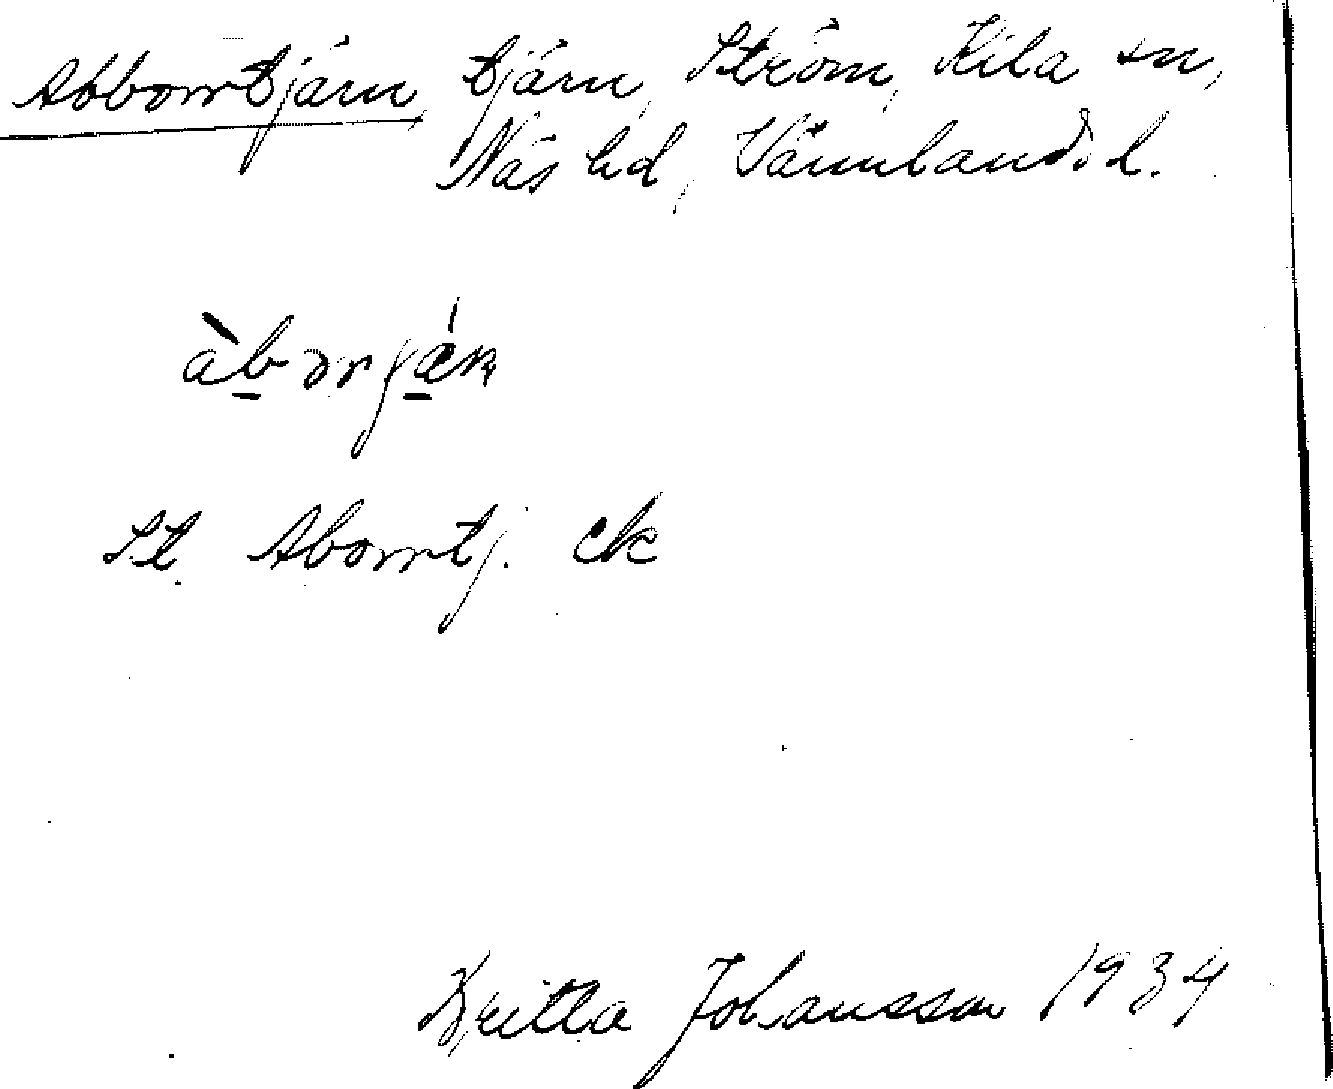 Abborrtjärn, tjärn, Ström, Kila sn,
Näs hd, Värmlands l.
St. Aborrtj. ek
Britta Johansson 1934